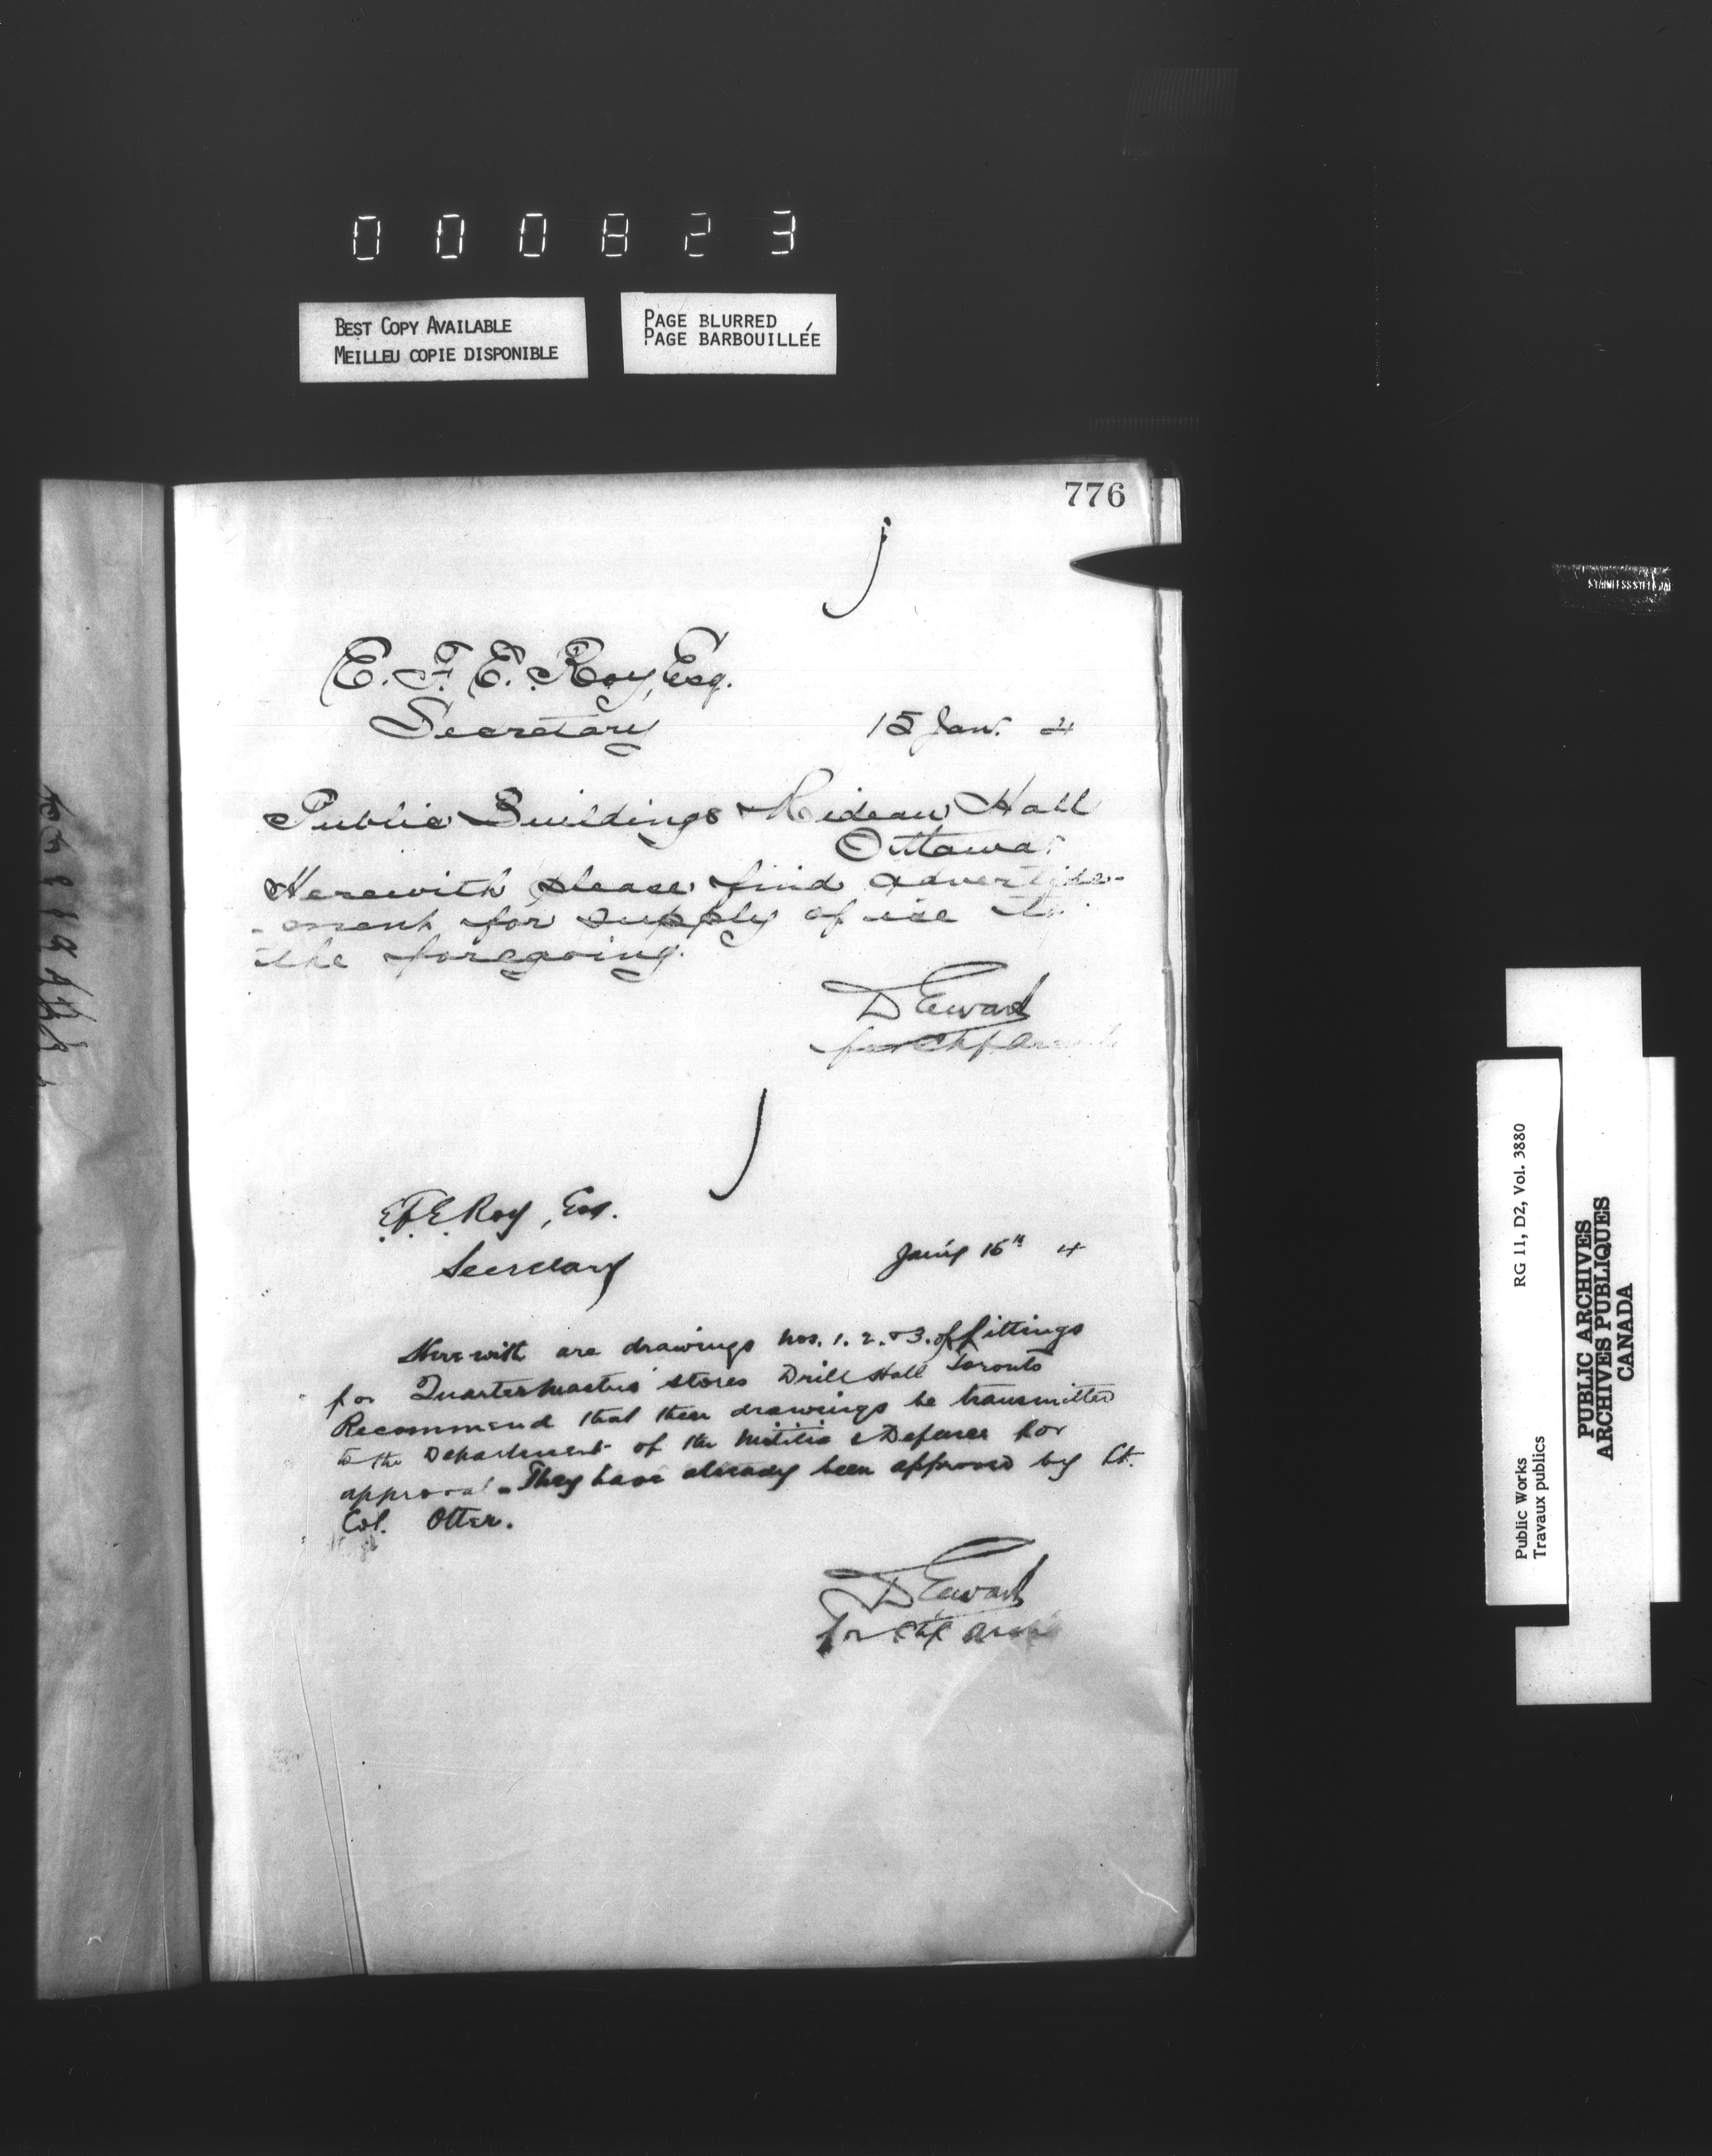 000823
BEST COPY AVAILABLE
MEILLEU COPIE DISPONIBLE
PAGE BLURRED
PAGE BARBOUILLÉE
776
E. F. E. Roy, Esq.
Secretary
15 Jan. 4
Public Buildings & Rideau Hall
Ottawa
Herewith please find advertise-
-ment for supply of ice to
the foregoing.
D Ewart
for Chf Arch
E.F.E. Roy, Esq.
Secretary
Jan'y 15th 4
Herewith are drawings Nos. 1. 2. & 3. of fittings
for Quartermasters stores Drill Hall Toronto
Recommend that these drawings be transmitted
to the Department of the Militia & Defence for
approval - They have already been approved by Lt.
Col. Otter.
D Ewart
for Chf Arch
STAINLESS STEEL
RG 11, D2, Vol. 3880
Public Works
Travaux publics
PUBLIC ARCHIVES
ARCHIVES PUBLIQUES
CANADA